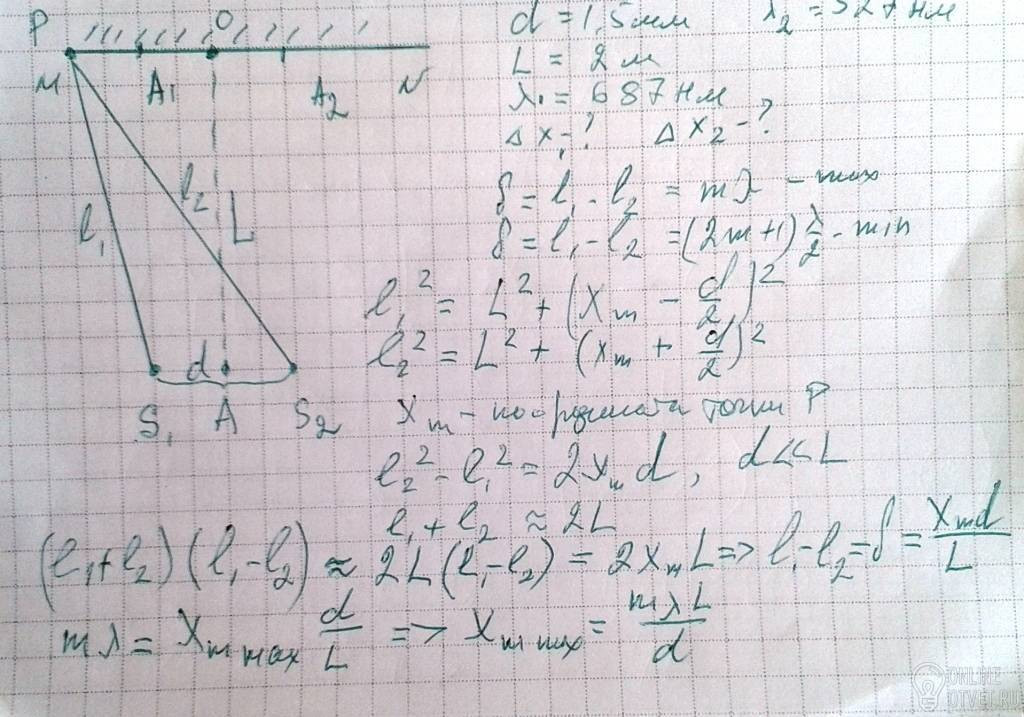 P O
M A₁ A₂ N
l₁ l₂ L
d
S₁ A S₂
d = 1,5мм λ₂ = 527 нм
L = 2 м
λ₁ = 687 нм
Δx₁-? Δx₂-?
δ = l₁ - l₂ = mλ - max
δ = l₁ - l₂ = (2m+1) λ/2 - min
l₁² = L² + (x_m - d/2)²
l₂² = L² + (x_m + d/2)²
x_m - координата точки P
l₂² - l₁² = 2x_m d, d << L
l₁ + l₂ ≈ 2L
(l₁+l₂)(l₁-l₂) ≈ 2L(l₁-l₂) = 2x_m L => l₁-l₂ = δ = x_m d/L
mλ = x_m max d/L => x_m max = mλL/d
ONLINE
OTVET.RU